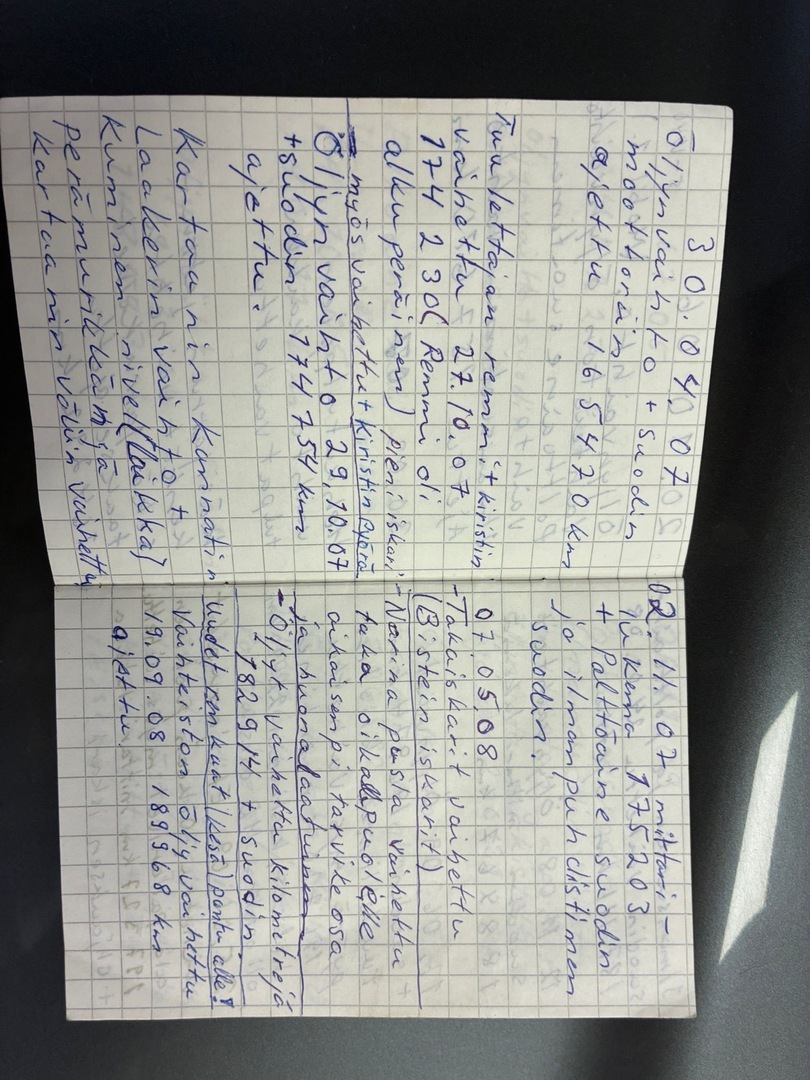 30.04.07
Öljyn vaihto + suodin
moottoriin
ajettu 165470 km
Tuulettajan remmi + kiristin
vaihettu 27.10.07
174 230 (Remmi oli
alkuperäinen) pieni iskari
myös vaihettu + kiristinpyörä
Öljyn vaihto 29.10.07
+ suodin 174 754 km
ajettu.
Kartaanin kannatin
Laakerin vaihto +
Kuminen nivel (Laikka)
perämurikkan ja
kartaanin väliin vaihettu
02.11.07 mittari-
lukema 175 203
+ Polttoaine suodin
ja ilman puhdistimen
suodin.
07 05.08
- Takaiskarit vaihettu
(Bistein iskarit)
- Narina pusla vaihettu
taka oikeallepuolelle
aikaisempi tarvikeosa
ja huonolaatuinen
- Öljyt vaihettu kilometrejä
182 914 + suodin
Uudet renkaat (kesä) pantu alle!
Vaihteiston öljy vaihettu
19.09.08 189968 km
ajettu